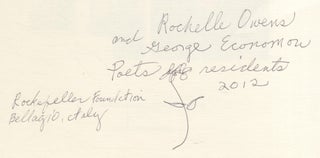 and Rochelle Owens
George Economou
Poets residents
2012
Rockefeller Foundation
Bellagio, Italy